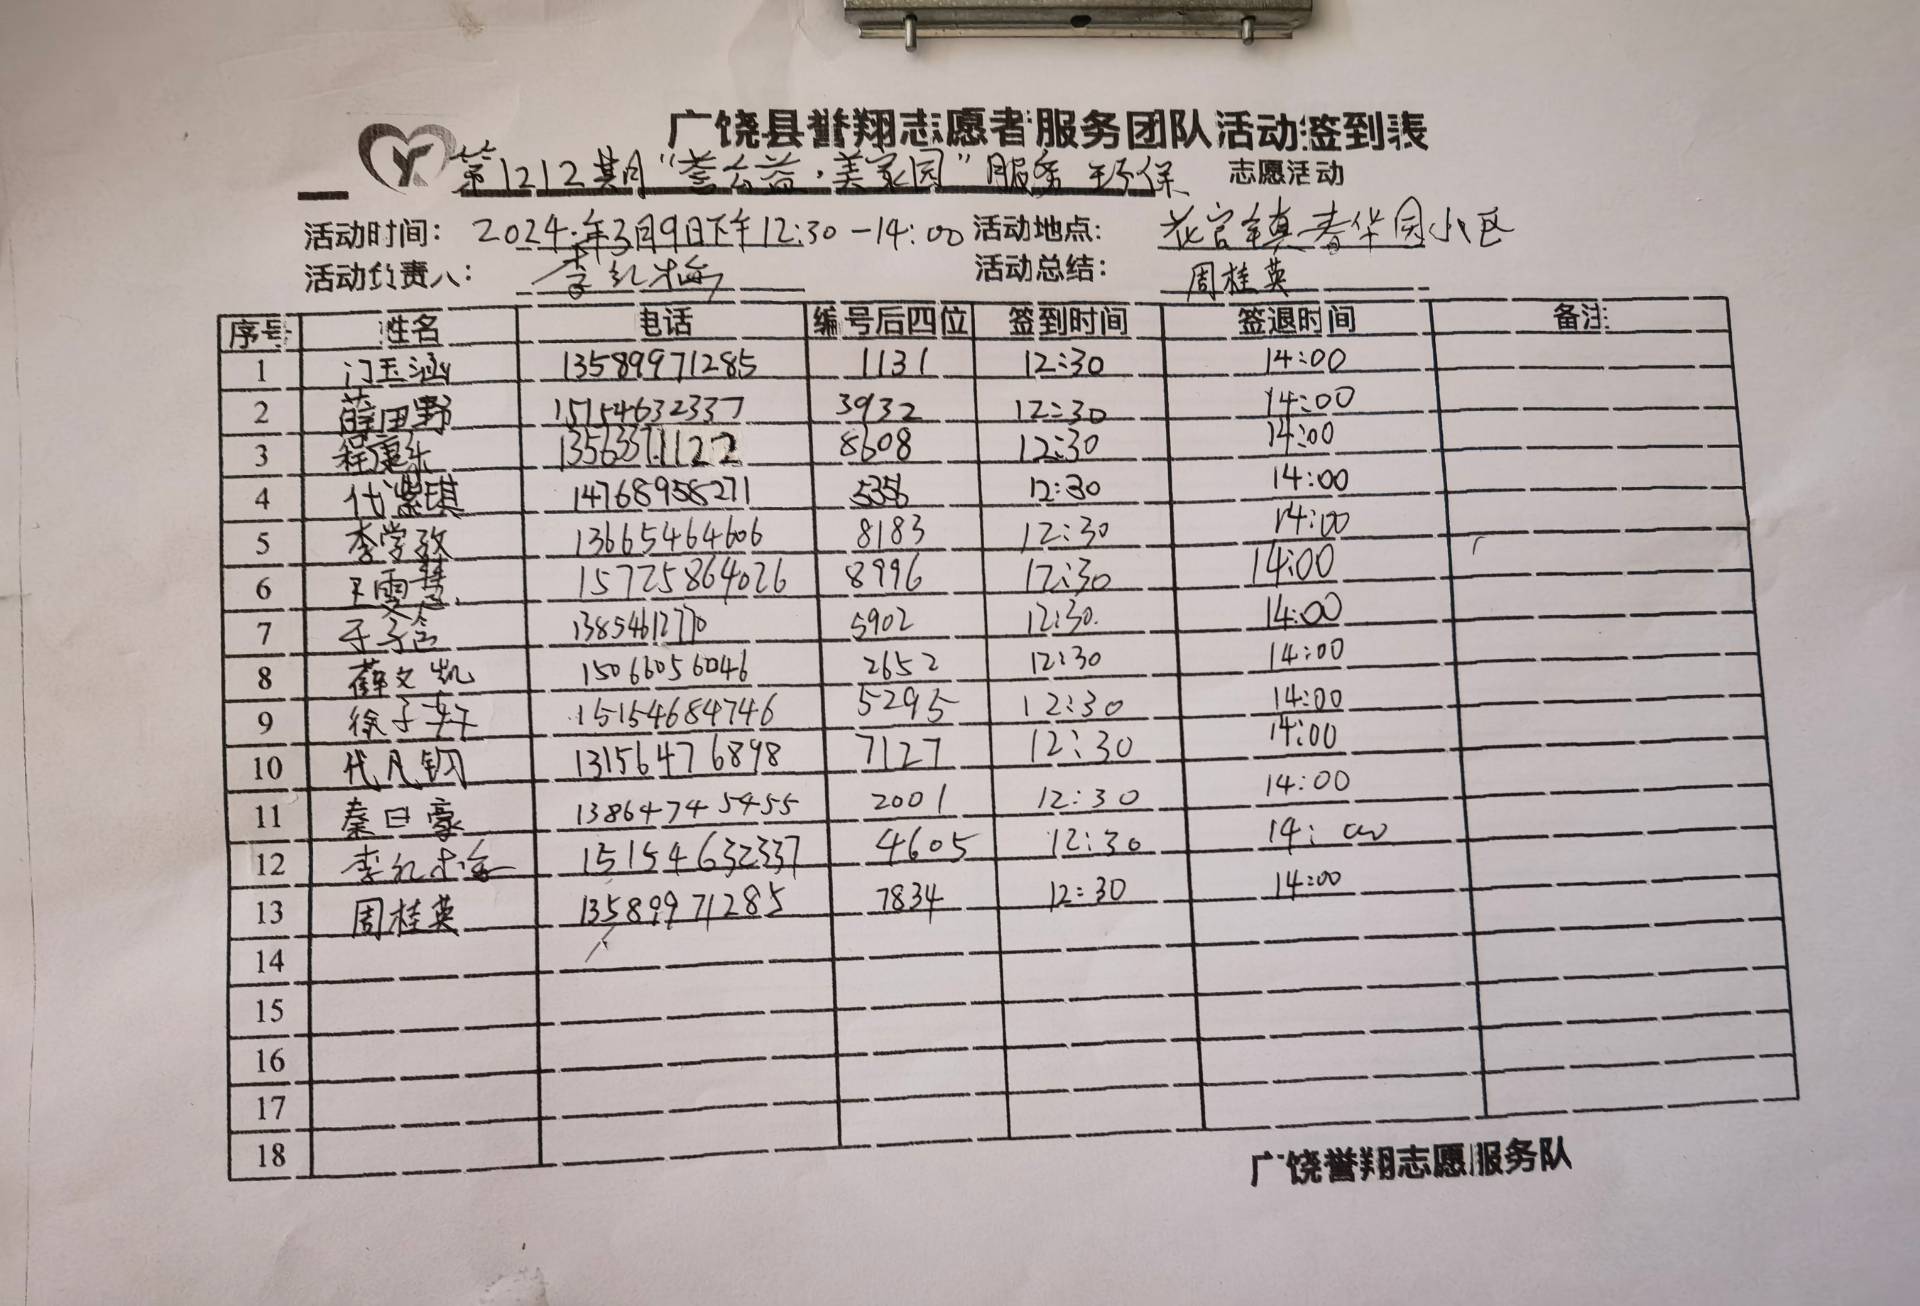 广饶县誉翔志愿者服务团队活动签到表
第1212期“誉公益·美家园”服务 环保 志愿活动
活动时间: 2024.年3月9日下午12:30-14:00 活动地点: 花官镇春华园小区
活动负责人: 李红梅 活动总结: 周桂英
序号 姓名 电话 编号后四位 签到时间 签退时间 备注
1 门玉涵 13589971285 1131 12:30 14:00
2 薛田野 15154632337 3932 12:30 14:00
3 程康乐 13563371122 8608 12:30 14:00
4 代紫琪 14768958271 5356 12:30 14:00
5 李学孜 13665464606 8183 12:30 14:00
6 王雯慧 15725864026 8996 12:30 14:00
7 于子含 13854612770 5902 12:30. 14:00
8 薛文凯 15066056046 2652 12:30 14:00
9 徐子轩 15154684746 5295 12:30 14:00
10 代凡钢 13156476898 7127 12:30 14:00
11 秦日豪 13864745455 2001 12:30 14:00
12 李红梅 15154632337 4605 12:30 14:00
13 周桂英 13589971285 7834 12:30 14:00
14
15
16
17
18
广饶誉翔志愿服务队